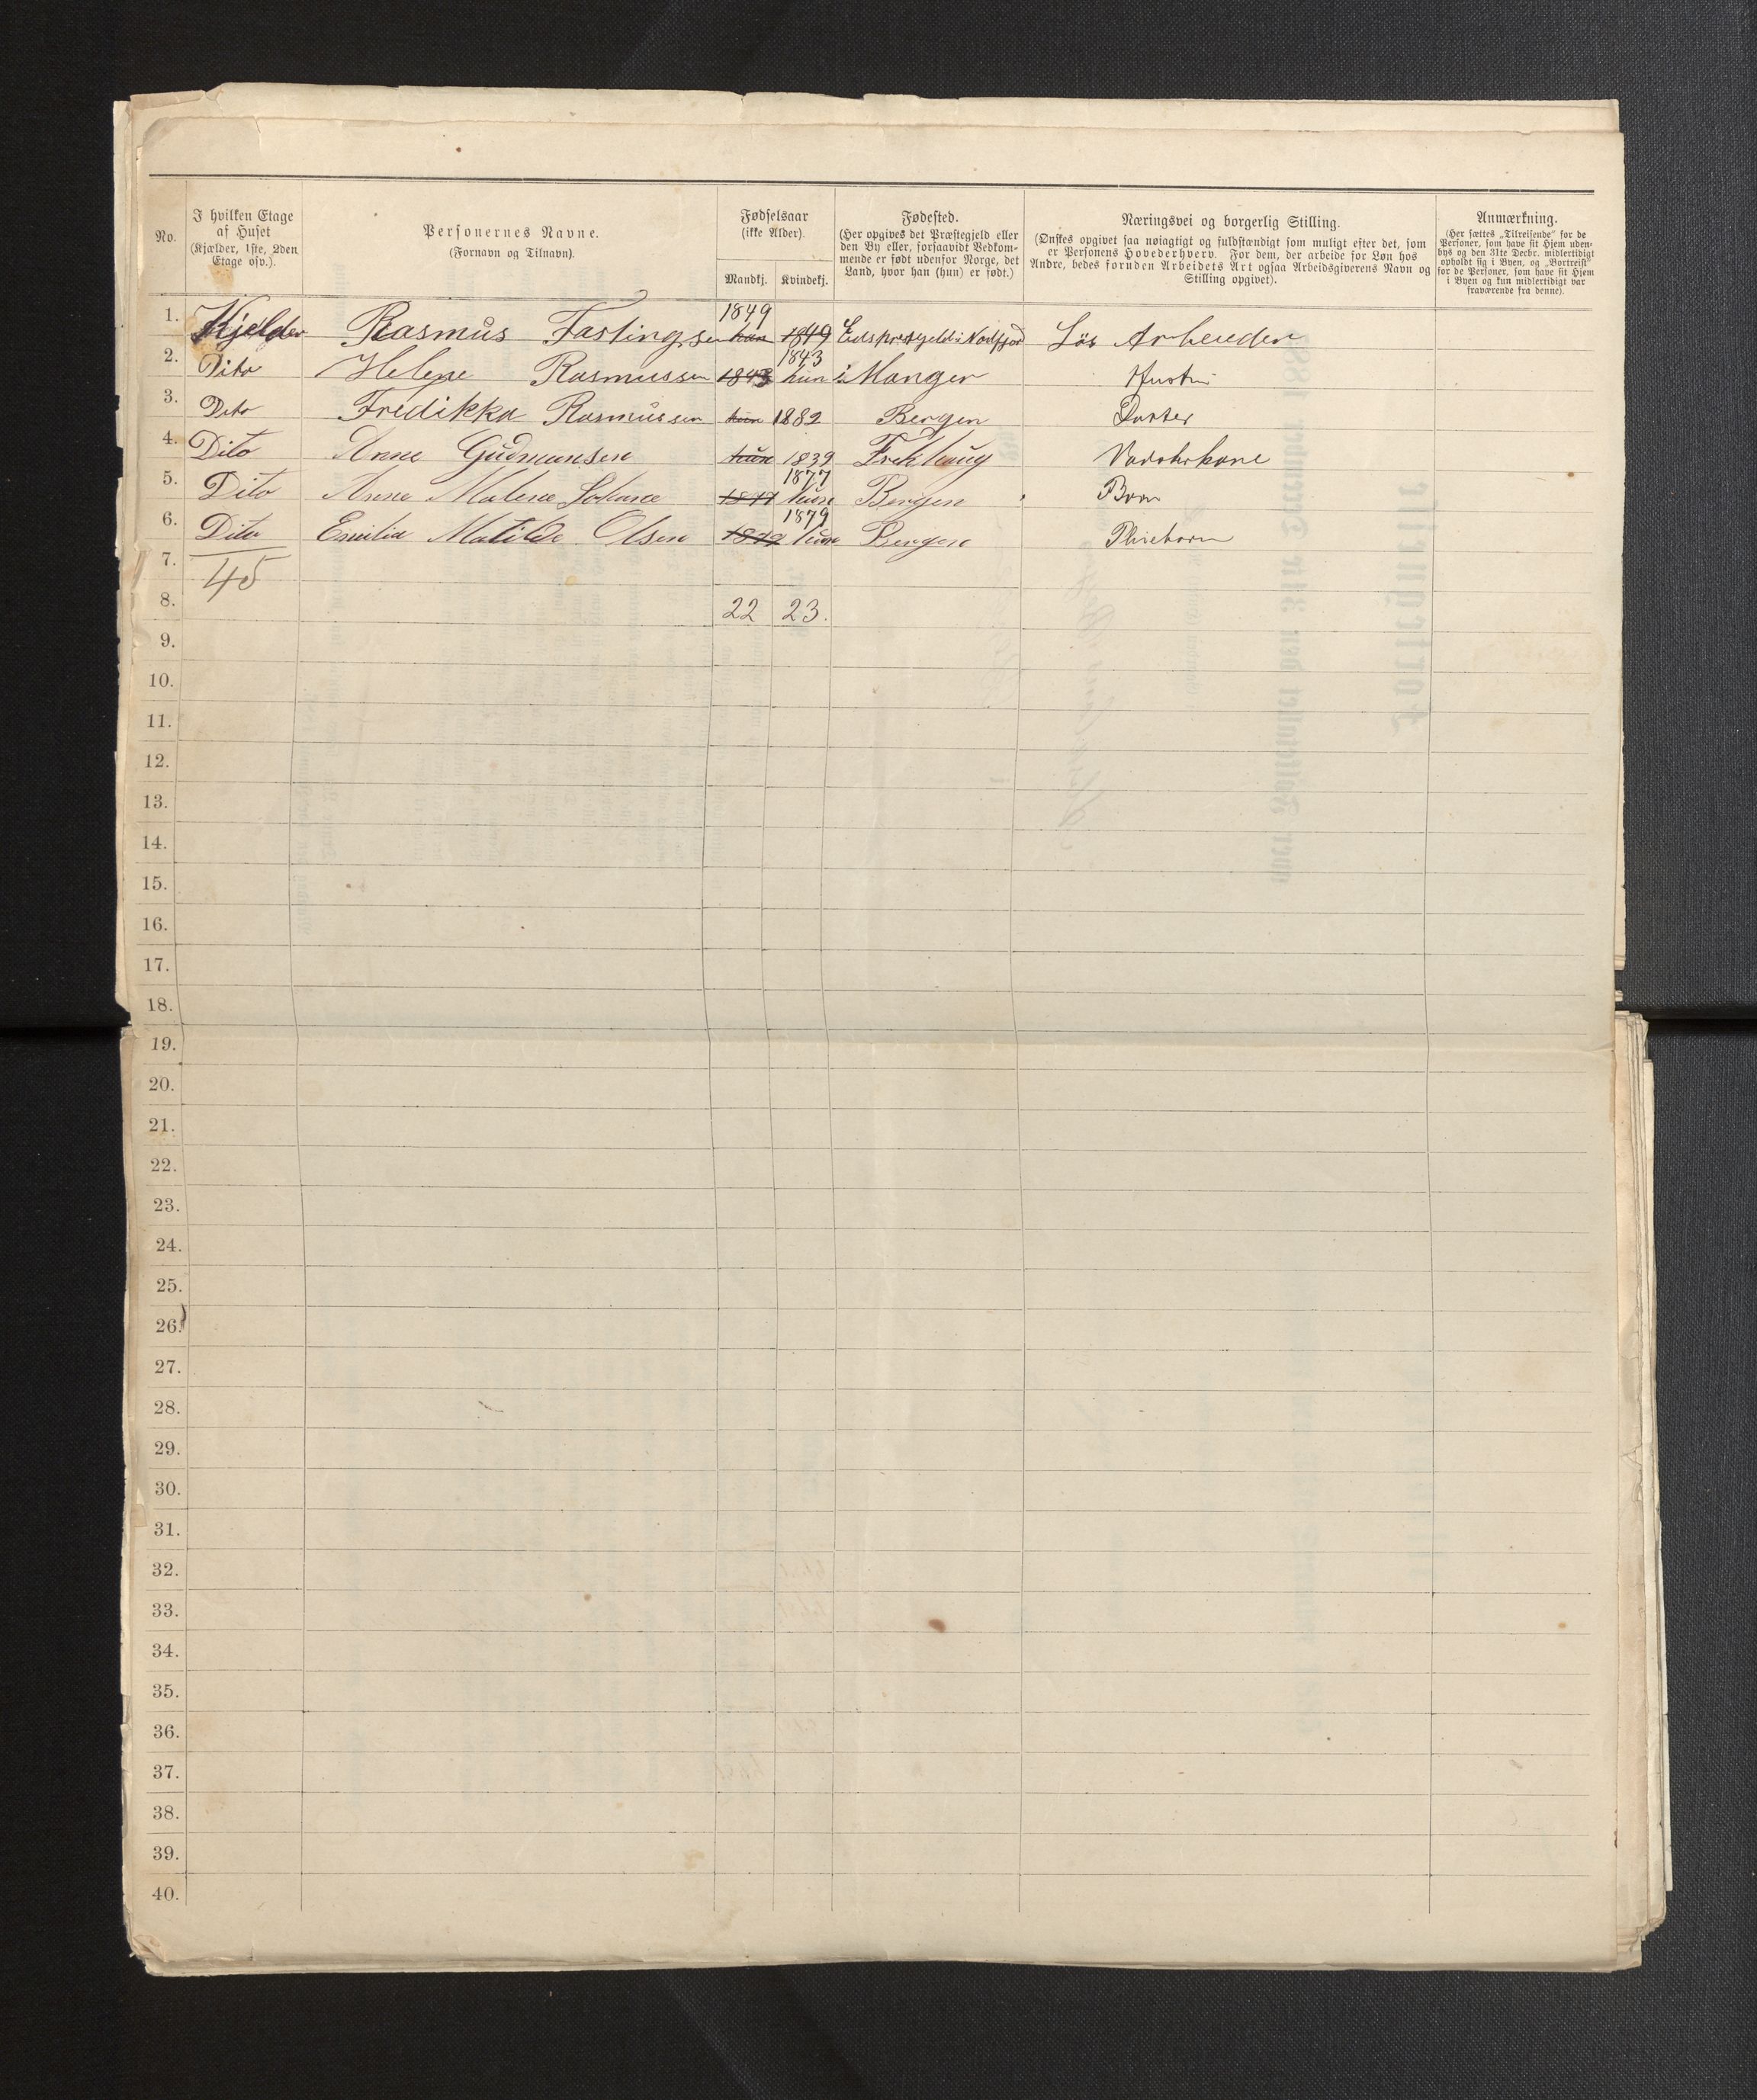 No.
I hvilken Etage
af Huset
(Kjælder, 1ste, 2den
Etage osv.).
Personernes Navne.
(Fornavn og Tilnavn).
Fødselsaar
(ikke Alder).
Mandkj. Kvindekj.
Fødested.
(Her opgives det Præstegjeld eller
den By eller, forsaavidt Vedkom-
mende er født udenfor Norge, det
Land, hvor han (hun) er født.)
Næringsvei og borgerlig Stilling.
(Ønskes opgivet saa nøiagtigt og fuldstændigt som muligt efter det, som
er Personens Hovederhverv. For dem, der arbeide for Løn hos
Andre, bedes foruden Arbeidets Art ogsaa Arbeidsgiverens Navn og
Stilling opgivet).
Anmærkning.
(Her sættes „Tilreisende“ for de
Personer, som have sit Hjem uden-
bys og den 31te Decbr. midlertidigt
opholdt sig i Byen, og „Bortreist“
for de Personer, som have sit Hjem
i Byen og kun midlertidigt var
fraværende fra denne).
1849
1. Kjelder Rasmus Fastingsen hun 1849 Eids prestgeld i Nordfjord Lös Arbeider
1843
2. Dito Helene Rasmussen 1843 hun i Manger Hustru
3. Dito Fredikka Rasmussen hun 1882 Bergen Datter
4. Dito Anne Gudmunsen hun 1839 Frekhaug
1877
5. Dito Anna Malene Johane hun Bergen Born
1879
6. Dito Emilia Matilde Olsen 1879 hun Bergen
7. 45
8. 22 23.
9.
10.
11.
12.
13.
14.
15.
16.
17.
18.
19.
20.
21.
22.
23.
24.
25.
26.
27.
28.
29.
30.
31.
32.
33.
34.
35.
36.
37.
38.
39.
40.